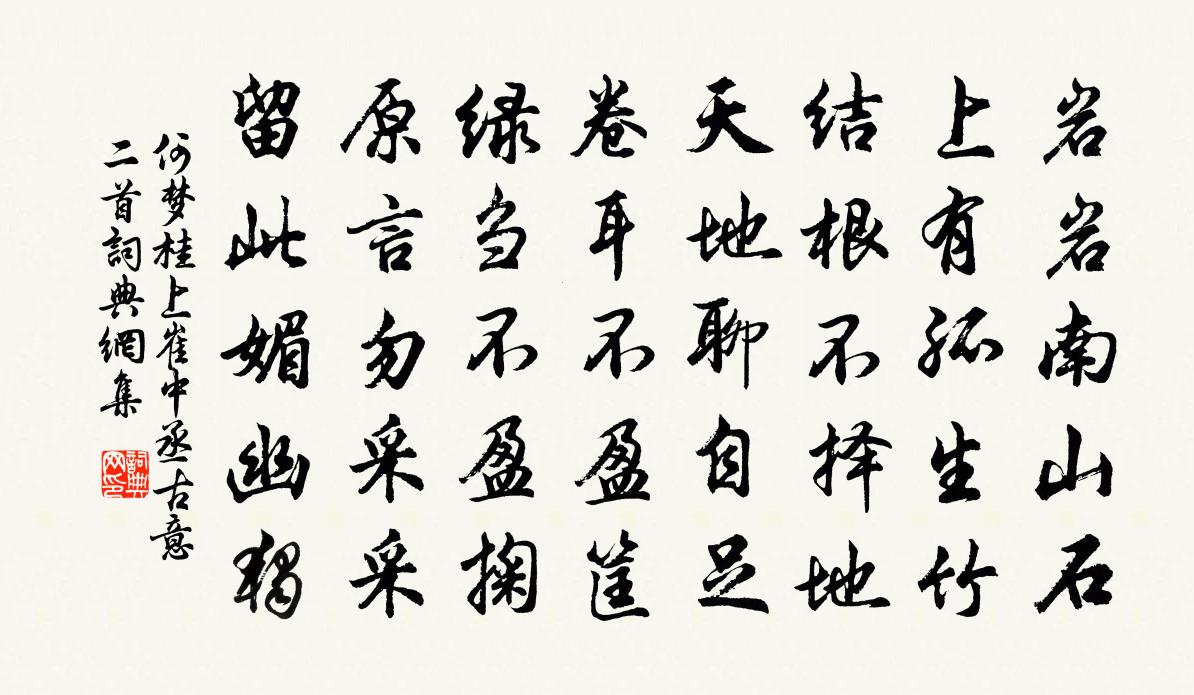 岩岩南山石
上有孤生竹
结根不择地
天地聊自足
卷耳不盈筐
绿刍不盈掬
原言勿采采
留此媚幽独
何梦桂上崔中丞古意
二首詞典網集
詞典
网印